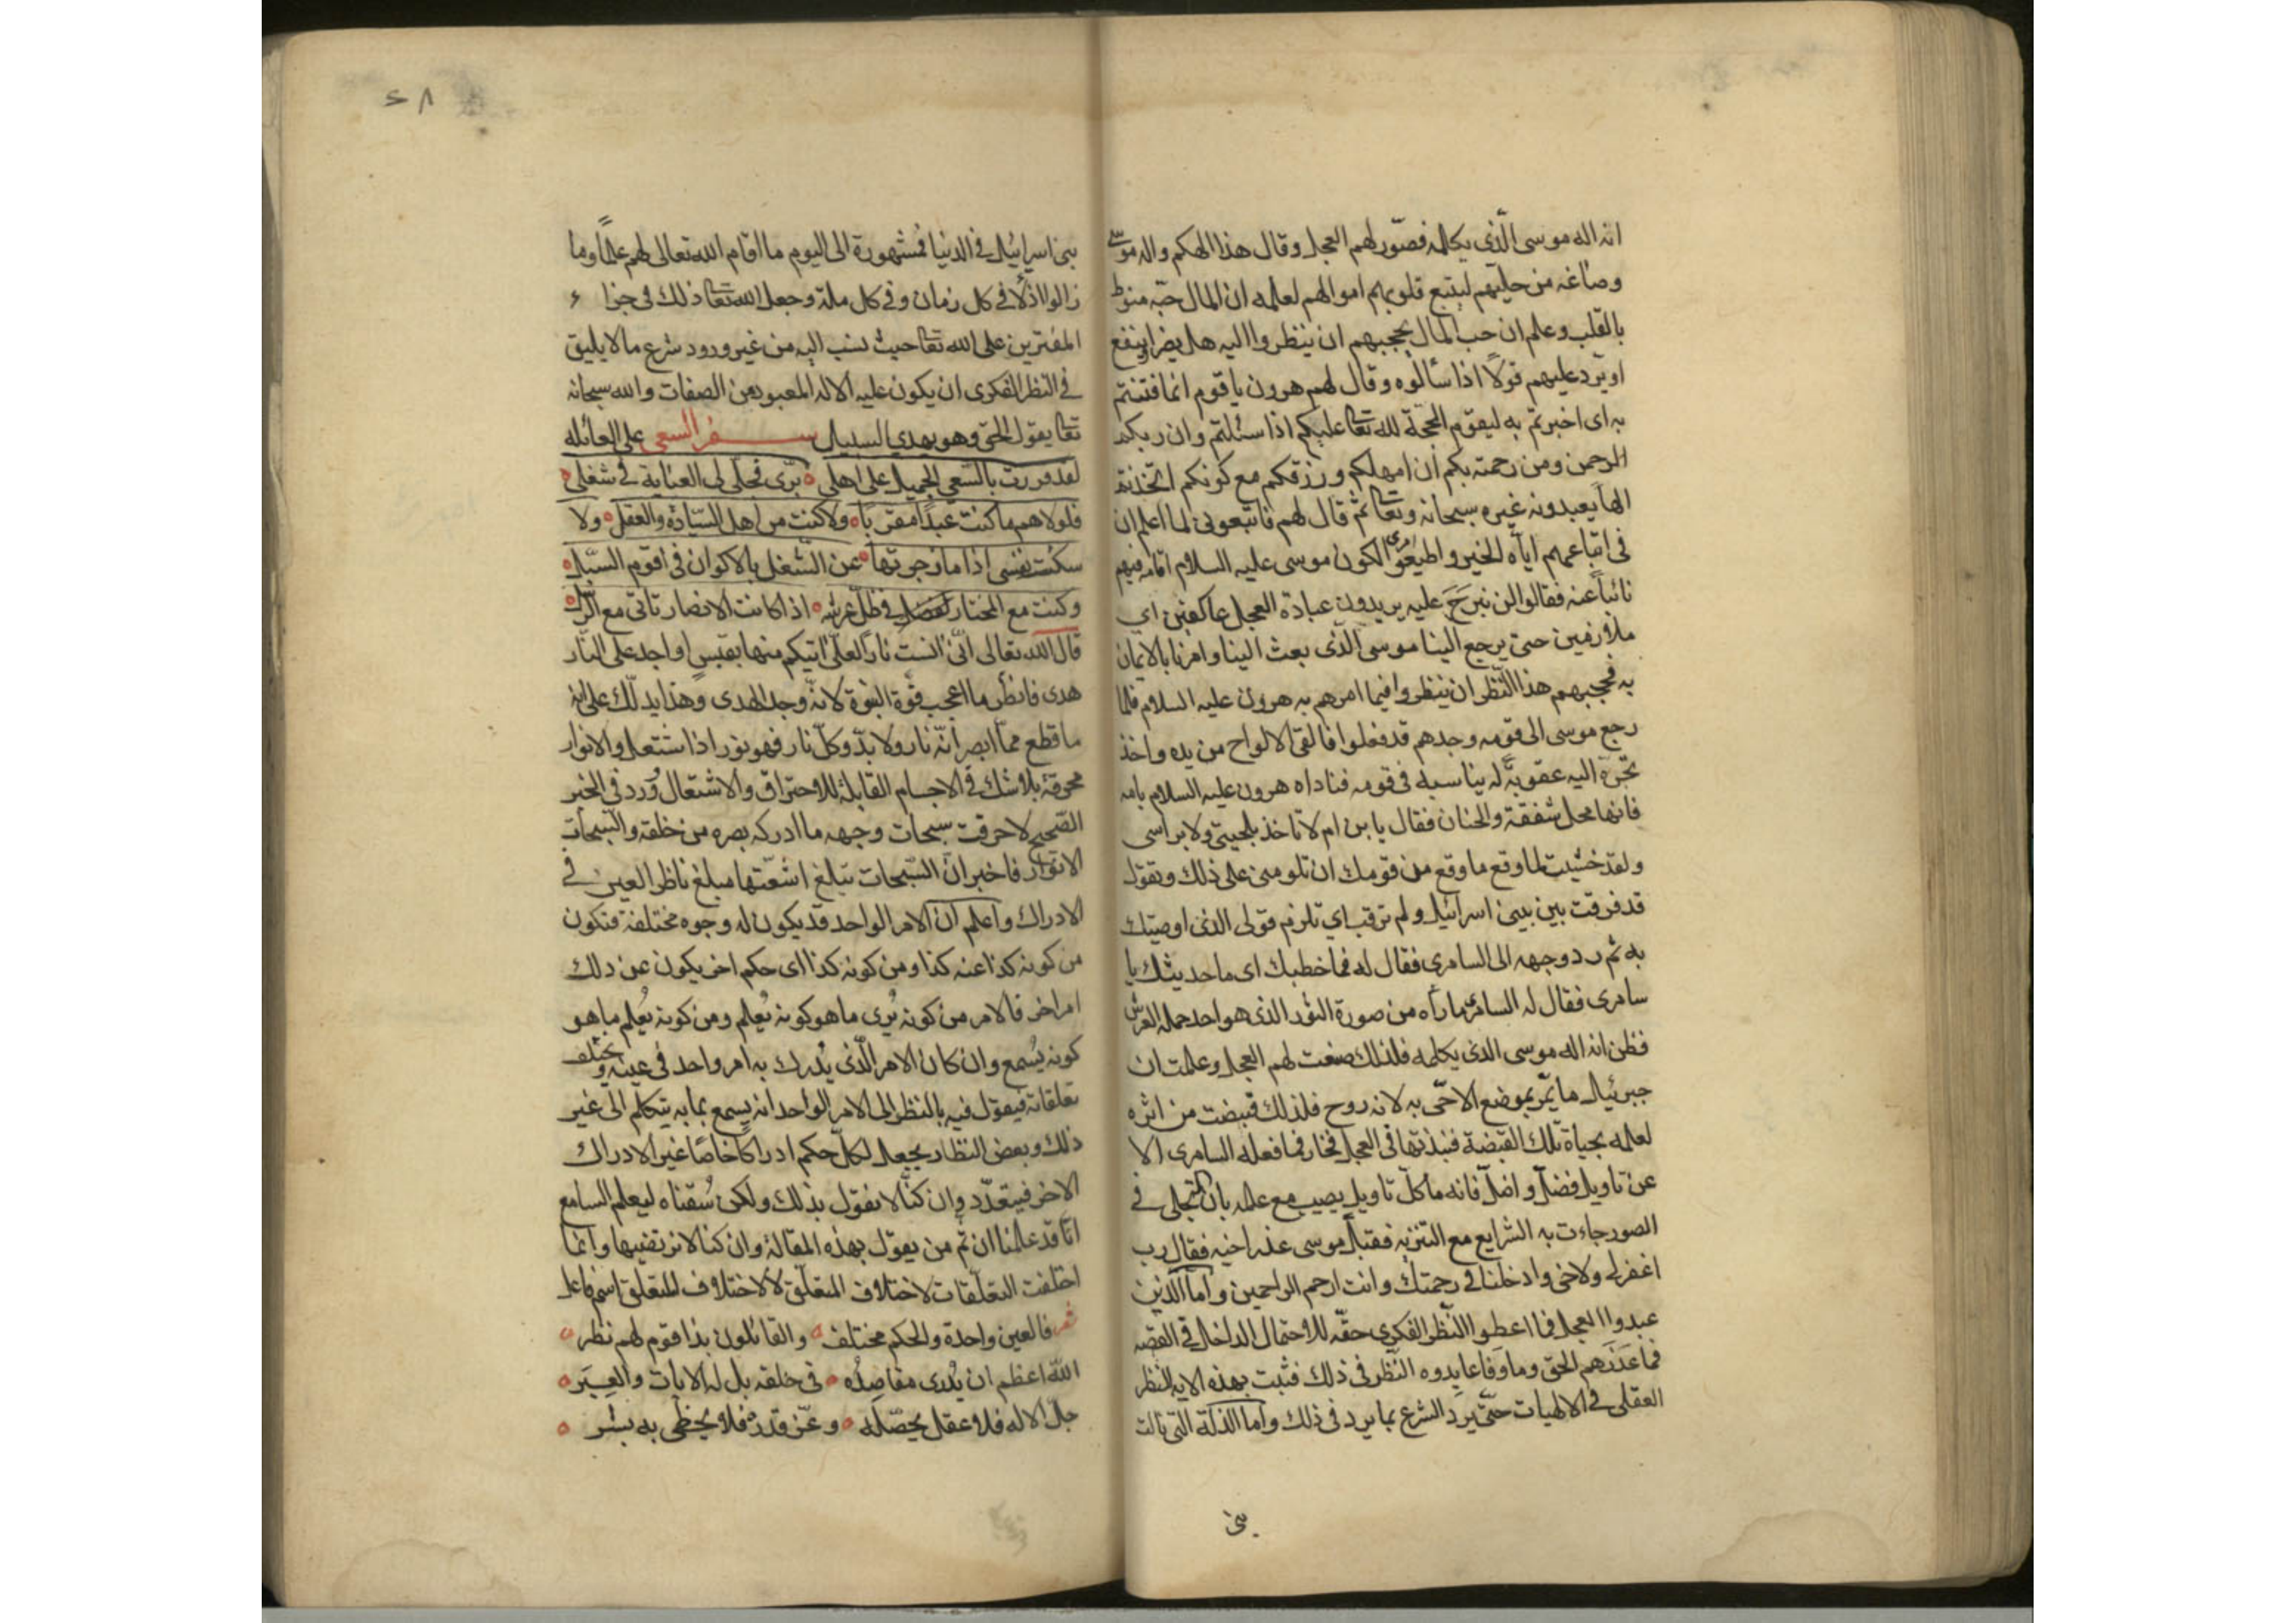 انه اله موسى الّذي يكلمه فصّور لهم العجل وقال هذا الهكم واله موسى
وصاغه من حليهم ليتبع قلوبهم اموالهم لعلمه ان المال حبّه منوط
بالقلب وعلم ان حب المال يحجبهم ان ينظروا اليه هل يضر او ينفع
او يرّد عليهم قولاً اذا سألوه وقال لهم هرون يا قوم انما فتنتم
به اى اختبرتم به ليقوم الحجة لله تعا عليكم اذا سئلتم وان ربكم
الرحمن ومن رحمته بكم ان امهلكم ورزقكم مع كونكم اتخذتم
الهاً يعبدونه غيره سبحانه وتعا ثم قال لهم فاتبعونى لما اعلم ان
فى اتباعهم اياه الخير واطيعوا امرى لكون موسى عليه السلام اقامه فيهم
نائباً عنه فقالوا لن نبرَحَ عليه يريدون عبادة العجل عاكفين اي
ملازمين حتى يرجع الينا موسى الّذى بعث الينا وامرنا بالايمان
به فحجبهم هذا النّظر ان ينظروا فيما امرهم به هرون عليه السلام فلما
رجع موسى الى قومه وجدهم قد فعلوا فالقى الالواح من يده واخذ
يجّره اليه عقوبةً له بتاسيه فى قومه فناداه هرون عليه السلام بامه
فانها محل شفقة والحنان فقال يا بن ام لا تاخذ بلحيتى ولا براسى
ولقد خشيت لما وقع ما وقع من قومك ان تلومنى على ذلك وتقول
قد فرقت بين بنى اسرائيل ولم ترقب اي تلزم قولى الذى اوصيتك
به ثم رد وجهه الى السامرى فقال له فما خطبك اى ما حديثك يا
سامرى فقال له السامرى ما رآه من صورة الثور الذى هو احد حملة العرش
فظن انه اله موسى الذى يكلمه فلذلك صنعت لهم العجل وعلمت ان
جبرئيل ما يمّر بموضع الا حّى به لانه روح فلذلك قبضت من اثره
لعلمه بحياة تلك القبضة فنبذتها فى العجل فخار فما فعله السامرى الا
عن تاويل فضلّ واضلّ فانه ما كلّ تاويل يصيب مع علمه بان التجلى فى
الصور جاءت به الشرايع مع التنزيه فقبل موسى عذر اخيه فقال رب
اغفر لى ولاخى وادخلنا فى رحمتك وانت ارحم الراحمين واما الّذين
عبدوا العجل فما اعطوا النّظر الفكري حقّه للاحتمال الداخل فى القصه
فما عذرهم الحق وما وفا عابدوه النّظر فى ذلك فثبت بهذه الاية النّظر
العقلى فى الالهيات حتّى يرد الشرع بما يرد فى ذلك واما الذلة التى نالت
بنى
٢٨
بنى اسرائيل فى الدنيا فمشهورة الى اليوم ما اقام الله تعالى لهم علماً وما
زالوا اذلّا فى كل زمان وفى كل ملة وجعل الله تعا ذلك فى جزاء
المفترين على الله تعا حيث نسب اليه من غير ورود شرع ما لا يليق
فى النظر الفكرى ان يكون عليه الاله المعبود من الصفات والله سبحانه
تعا يقول الحق وهو يهدي السبيل سفر السعى على العائلة
لقد فررت بالسّعى الجميل على اهلى ٥ برّى تجلّى لى العناية فى شغلى ٥
فلولاهم ما كنت عبداً مقرباً ٥ ولا كنت من اهل السّيادة والعقل ٥ ولا
سكنت نفسى اذا ما زجرتها ٥ عن الشّغل بالاكوان فى اقوم السّبل ٥
وكنت مع المختار لفضل فى ظل عرشه ٥ اذا كانت الانصار تاتى مع الرسل ٥
قال الله تعالى انّى انست ناراً لعلّى اتيكم منها بقبسٍ او اجد على النّار
هدى فانظر ما اعجب قوة النبوة لانّه وجد الهدى وهذا يدلّك على انه
ما قطع ممّا ابصر انّه نار ولا بدّ وكلّ نار فهو نور اذا اشتعل والانوار
محرقة بلا شك فى الاجسام القابلة للاحتراق والاشتعال وَرد فى الخبر
الصّحيح لاحرقت سبحات وجهه ما ادركه بصره من خلقه والسّبحات
الانوار فاخبر انّ السّبحات تبلغ اشعّتها مبلغ ناظر العين فى
الادراك واعلم ان الامر الواحد قد يكون له وجوه مختلفة فتكون
من كونه كذا عنه كذا ومن كونه كذا اى حكم اخر يكون عن ذلك
امر اخر فالامر من كونه يُرى ما هو كونه يُعلم ومن كونه يُعلم ما هو
كونه يُسمع وان كان الامر الّذى يُدرك به امر واحد فى عينه ويختلف
تعلقاته فيقول فيه بالنظر الى الامر الواحد انه يسمع بما به يتكلم الى غير
ذلك وبعض النظار يجعل لكلّ حكم ادراكاً خاصّاً غير الادراك
الاخر فيتعدّد وان كنّا لا نقول بذلك ولكن سُقناه ليعلم السامع
انّا قد علمنا ان ثم من يقول بهذه المقالة وان كنا لا نرتضيها وانما
اختلفت التعلّقات لاختلاف المتعلّق لا لاختلاف المتعلق اسم فاعل
شعر فالعين واحدة والحكم مختلف ٥ والقائلون بذا قوم لهم نظر ٥
اللّه اعظم ان يُدرى مقاصدُه ٥ فى خلقه بل له الايات والعِبَر ٥
جلّ الاله فلا عقل يحصّله ٥ وعزّ قدره فلا يحظى به بشر ٥